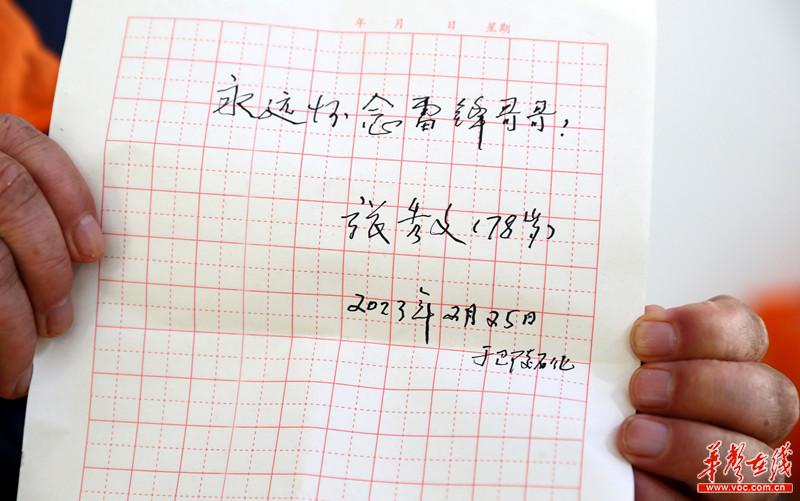 年 月 日 星期
永远怀念雷锋哥哥!
张秀文(78岁)
2023年2月25日
于巴陵石化
华声在线
www.voc.com.cn